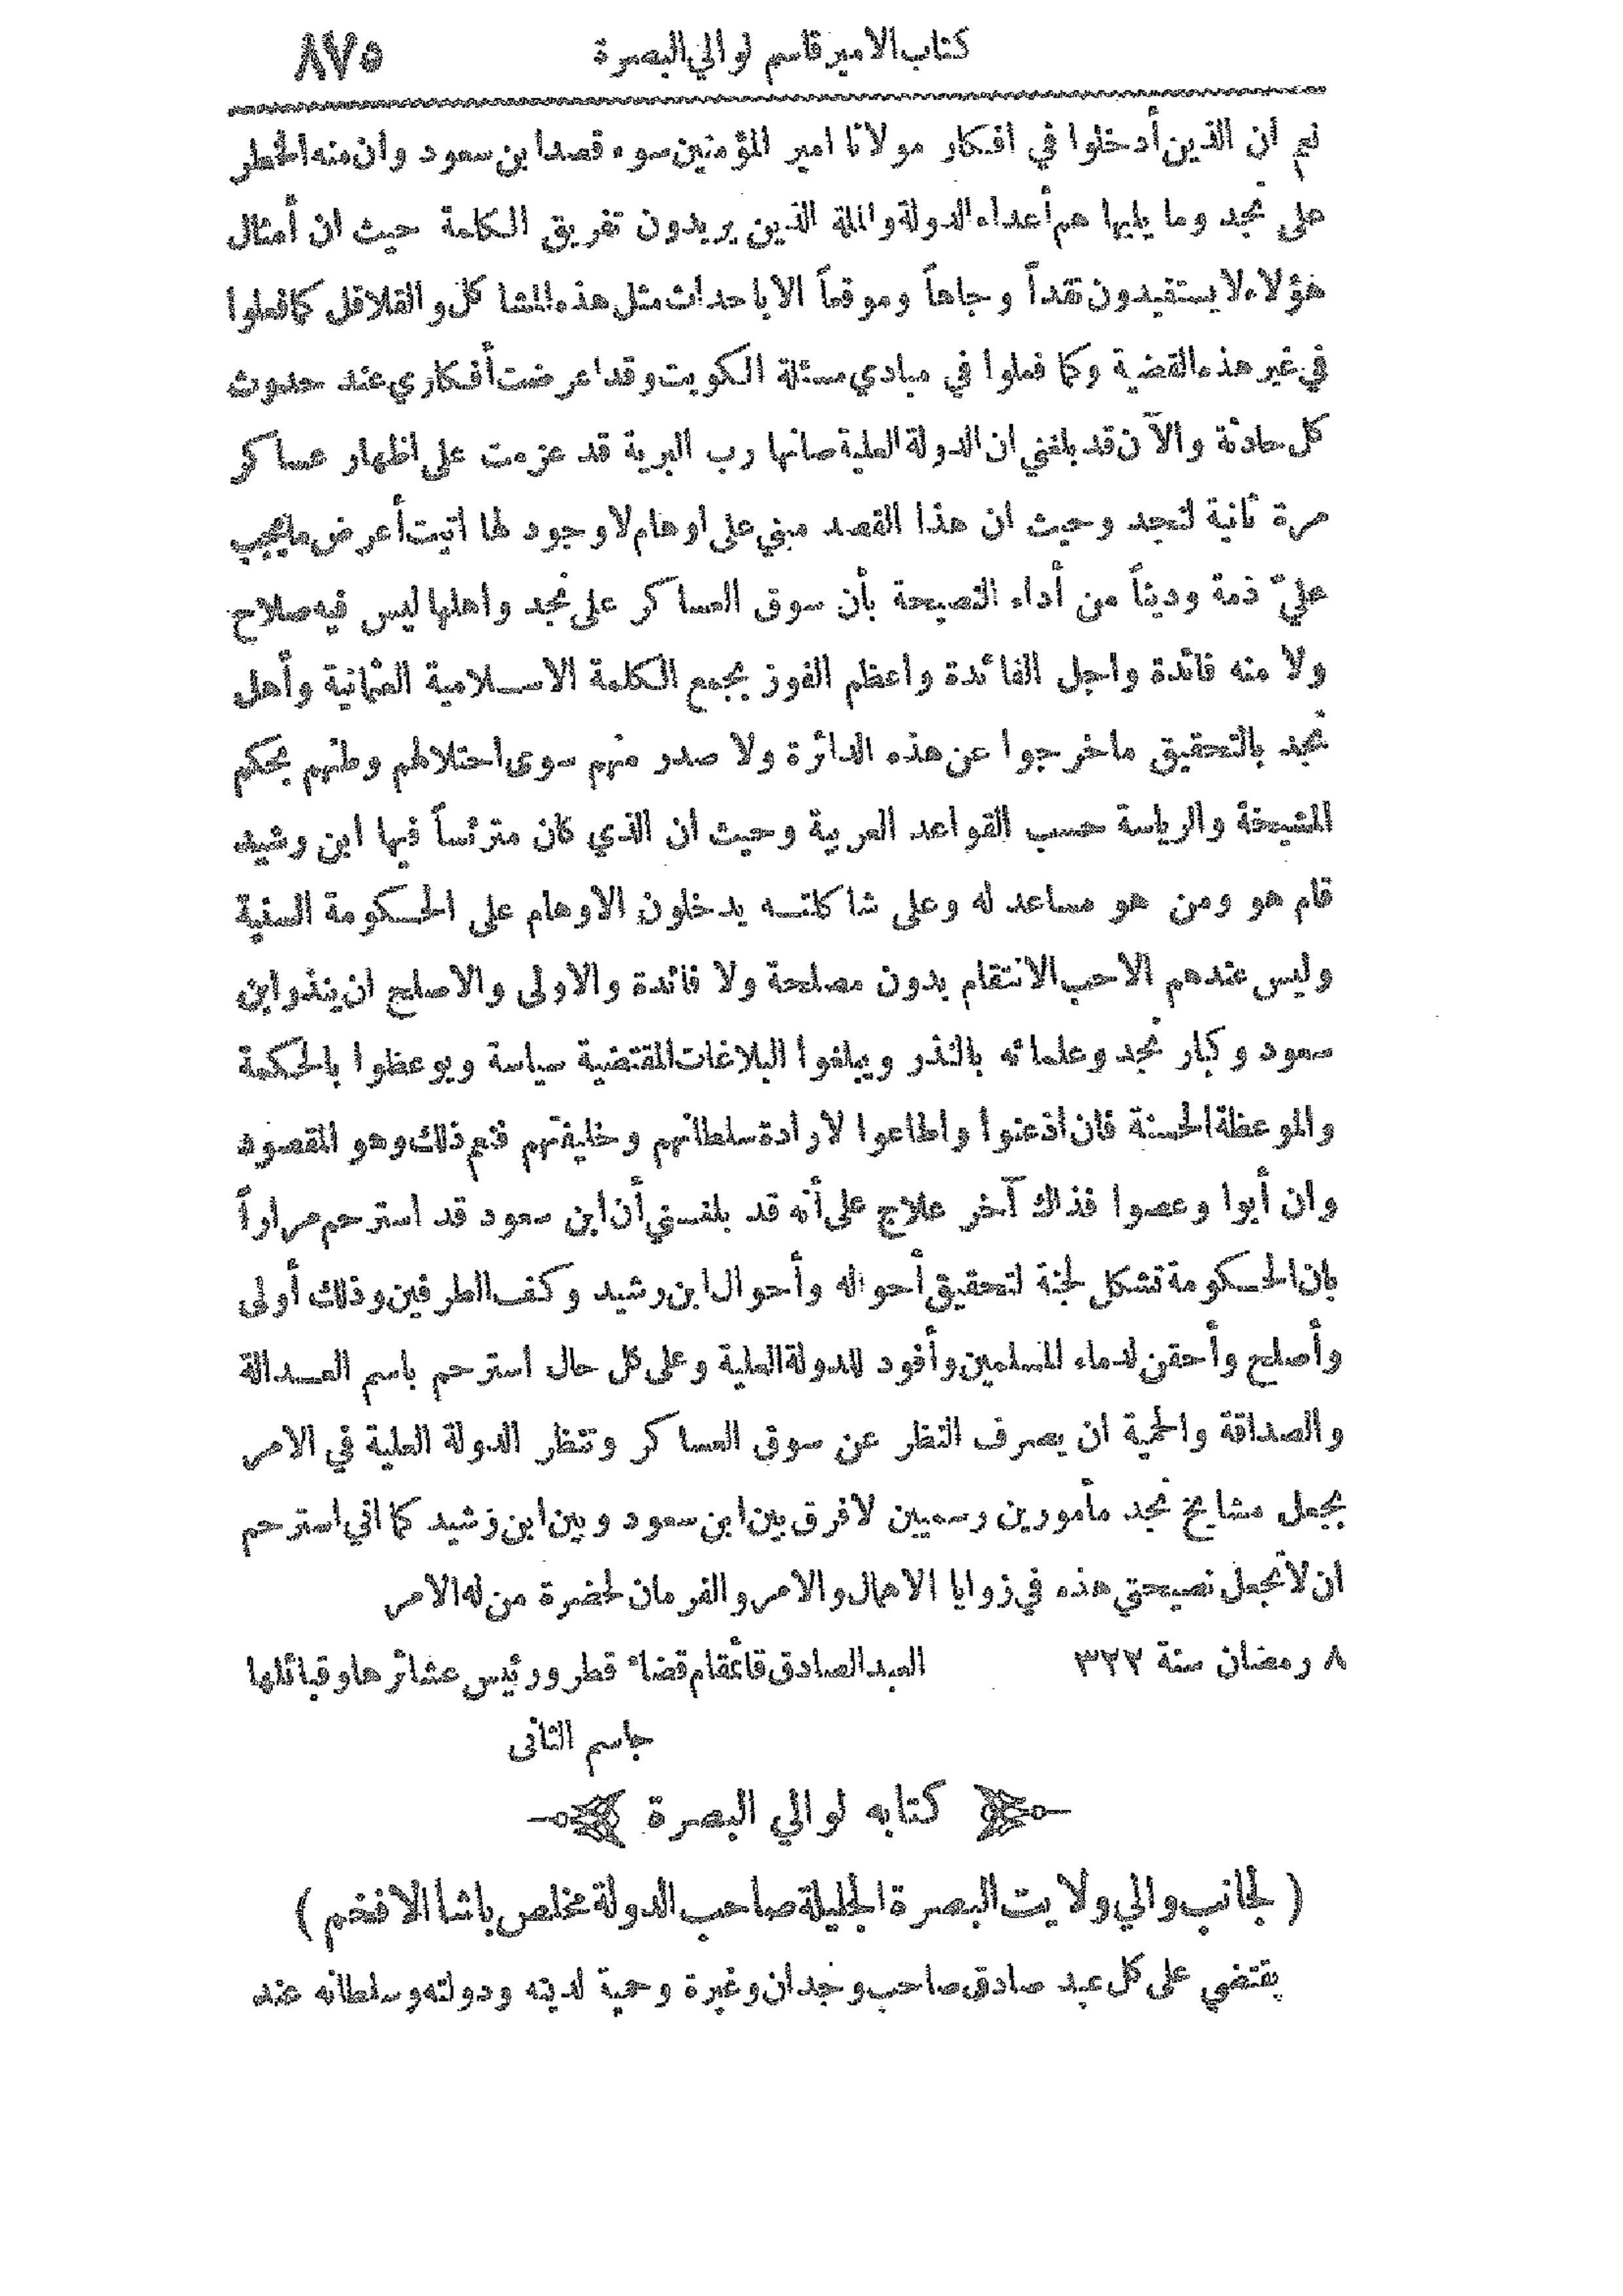 كتاب الامير قاسم لوالي البصرة ٨٧٥
نعم ان الذين أدخلوا في افكار مولانا امير المؤمنين سوء قصد ابن سعود وان منه الخطر
على نجد وما يليها هم أعداء الدولة والملة الذين يريدون تفريق الكلمة حيث ان أمثال
هؤلاء لا يستفيدون نقداً وجاهاً وموقعاً الا باحداث مثل هذه المشاكل والقلاقل كما فعلوا
في غير هذه القضية وكما فعلوا في مبادي مسئلة الكويت وقد اعرضت أفكاري عند حدوث
كل حادثة والآن قد بلغني ان الدولة العلية صانها رب البرية قد عزمت على اظهار عساكر
مرة ثانية لنجد وحيث ان هذا القصد مبني على اوهام لا وجود لها اتيت أعرض ما يجب
عليّ ذمة وديناً من أداء النصيحة بأن سوق العساكر على نجد واهلها ليس فيه صلاح
ولا منه فائدة واجل الفائدة واعظم الفوز بجمع الكلمة الاسلامية العثمانية وأهل
نجد بالتحقيق ما خرجوا عن هذه الدائرة ولا صدر منهم سوى احتلالهم وطنهم بحكم
المشيخة والرياسة حسب القواعد العربية وحيث ان الذي كان مترئساً فيها ابن رشيد
قام هو ومن هو مساعد له وعلى شاكلته يدخلون الاوهام على الحكومة السنية
وليس عندهم الا حب الانتقام بدون مصلحة ولا فائدة والاولى والاصلح ان ينذر ابن
سعود وكبار نجد وعلمائه بالنذر ويبلغوا البلاغات المقتضية سياسة ويوعظوا بالحكمة
والموعظة الحسنة فان اذعنوا واطاعوا لارادة سلطانهم وخليفتهم فنعم ذلك وهو المقصود
وان أبوا وعصوا فذاك آخر علاج على أنه قد بلغني أن ابن سعود قد استرحم مراراً
بان الحكومة تشكل لجنة لتحقيق أحواله وأحوال ابن رشيد وكف الطرفين وذلك أولى
وأصلح وأحقن لدماء المسلمين وأفود للدولة العلية وعلى كل حال استرحم باسم العدالة
والصداقة والحمية ان يصرف النظر عن سوق العساكر وتنظر الدولة العلية في الامر
بجعل مشايخ نجد مأمورين رسميين لا فرق بين ابن سعود وبين ابن رشيد كما اني استرحم
ان لا تجعل نصيحتي هذه في زوايا الاهمال والامر والفرمان لحضرة من له الامر
٨ رمضان سنة ٣٢٢ العبد الصادق قائمقام قضاء قطر ورئيس عشائرها وقبائلها
جاسم الثاني
كتابه لوالي البصرة
( لجانب والي ولايت البصرة الجليلة صاحب الدولة مخلص باشا الافخم )
يقتضي على كل عبد صادق صاحب وجدان وغيرة وحمية لدينه ودولته وسلطانه عند